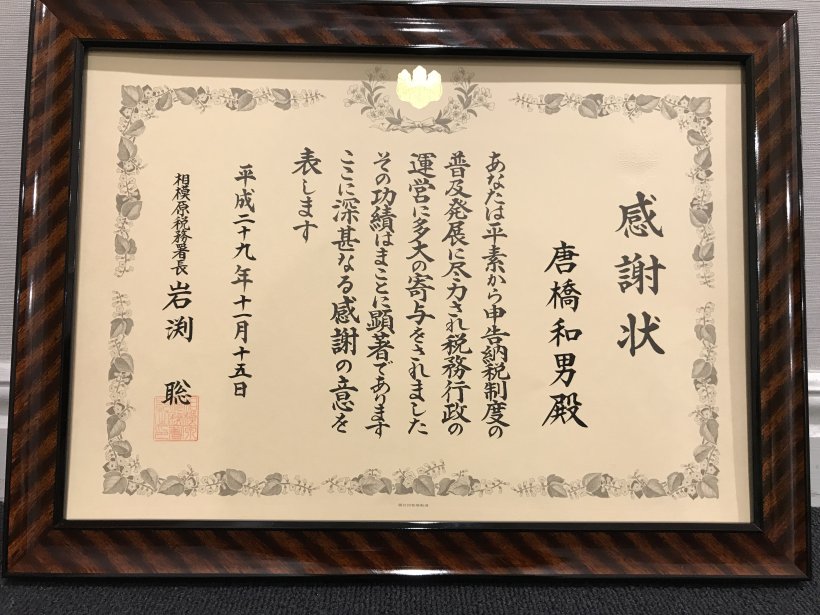 感謝状
唐橋和男殿
あなたは平素から申告納税制度の
普及発展に尽力され税務行政の
運営に多大の寄与をされました
その功績はまことに顕著であります
ここに深甚なる感謝の意を
表します
平成二十九年十一月十五日
相模原税務署長 岩渕 聡